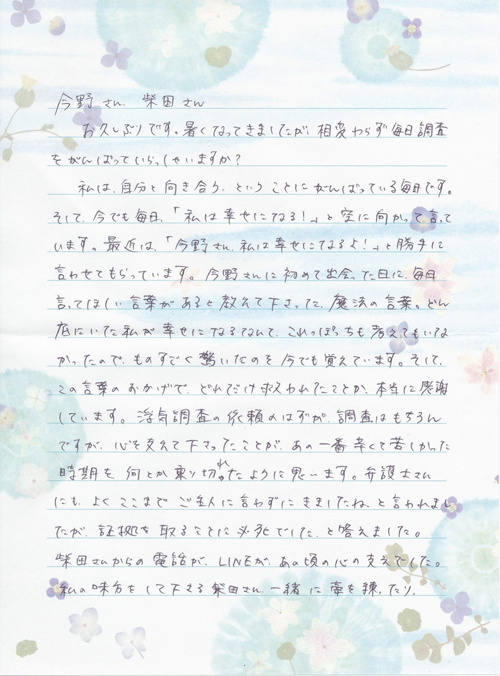 今野さん、柴田さん
お久しぶりです。暑くなってきましたが、相変わらず毎日調査
をがんばっていらっしゃいますか？
私は、自分と向き合う、ということにがんばっている毎日です。
そして、今でも毎日、「私は幸せになる！」と空に向かって言って
います。最近は、「今野さん、私は幸せになるよ！」と勝手に
言わせてもらっています。今野さんに初めて出会った日に、毎日
言ってほしい言葉があると教えて下さった、魔法の言葉。どん
底にいた私が幸せになるなんて、これっぽっちも考えてもいな
かったので、ものすごく驚いたのを今でも覚えています。そして、
この言葉のおかげで、どれだけ救われたことか、本当に感謝
しています。浮気調査の依頼のはずが、調査はもちろん
ですが、心を支えて下さったことが、あの一番辛くて苦しかった
時期を、何とか乗り切れたように思います。弁護士さん
にも、よくここまでご主人に言わずにきましたね、と言われまし
たが、証拠を取ることに必死でした、と答えました。
柴田さんからの電話が、LINEが、あの頃の心の支えでした。
私の味方をして下さる柴田さん、一緒に案を練ったり、